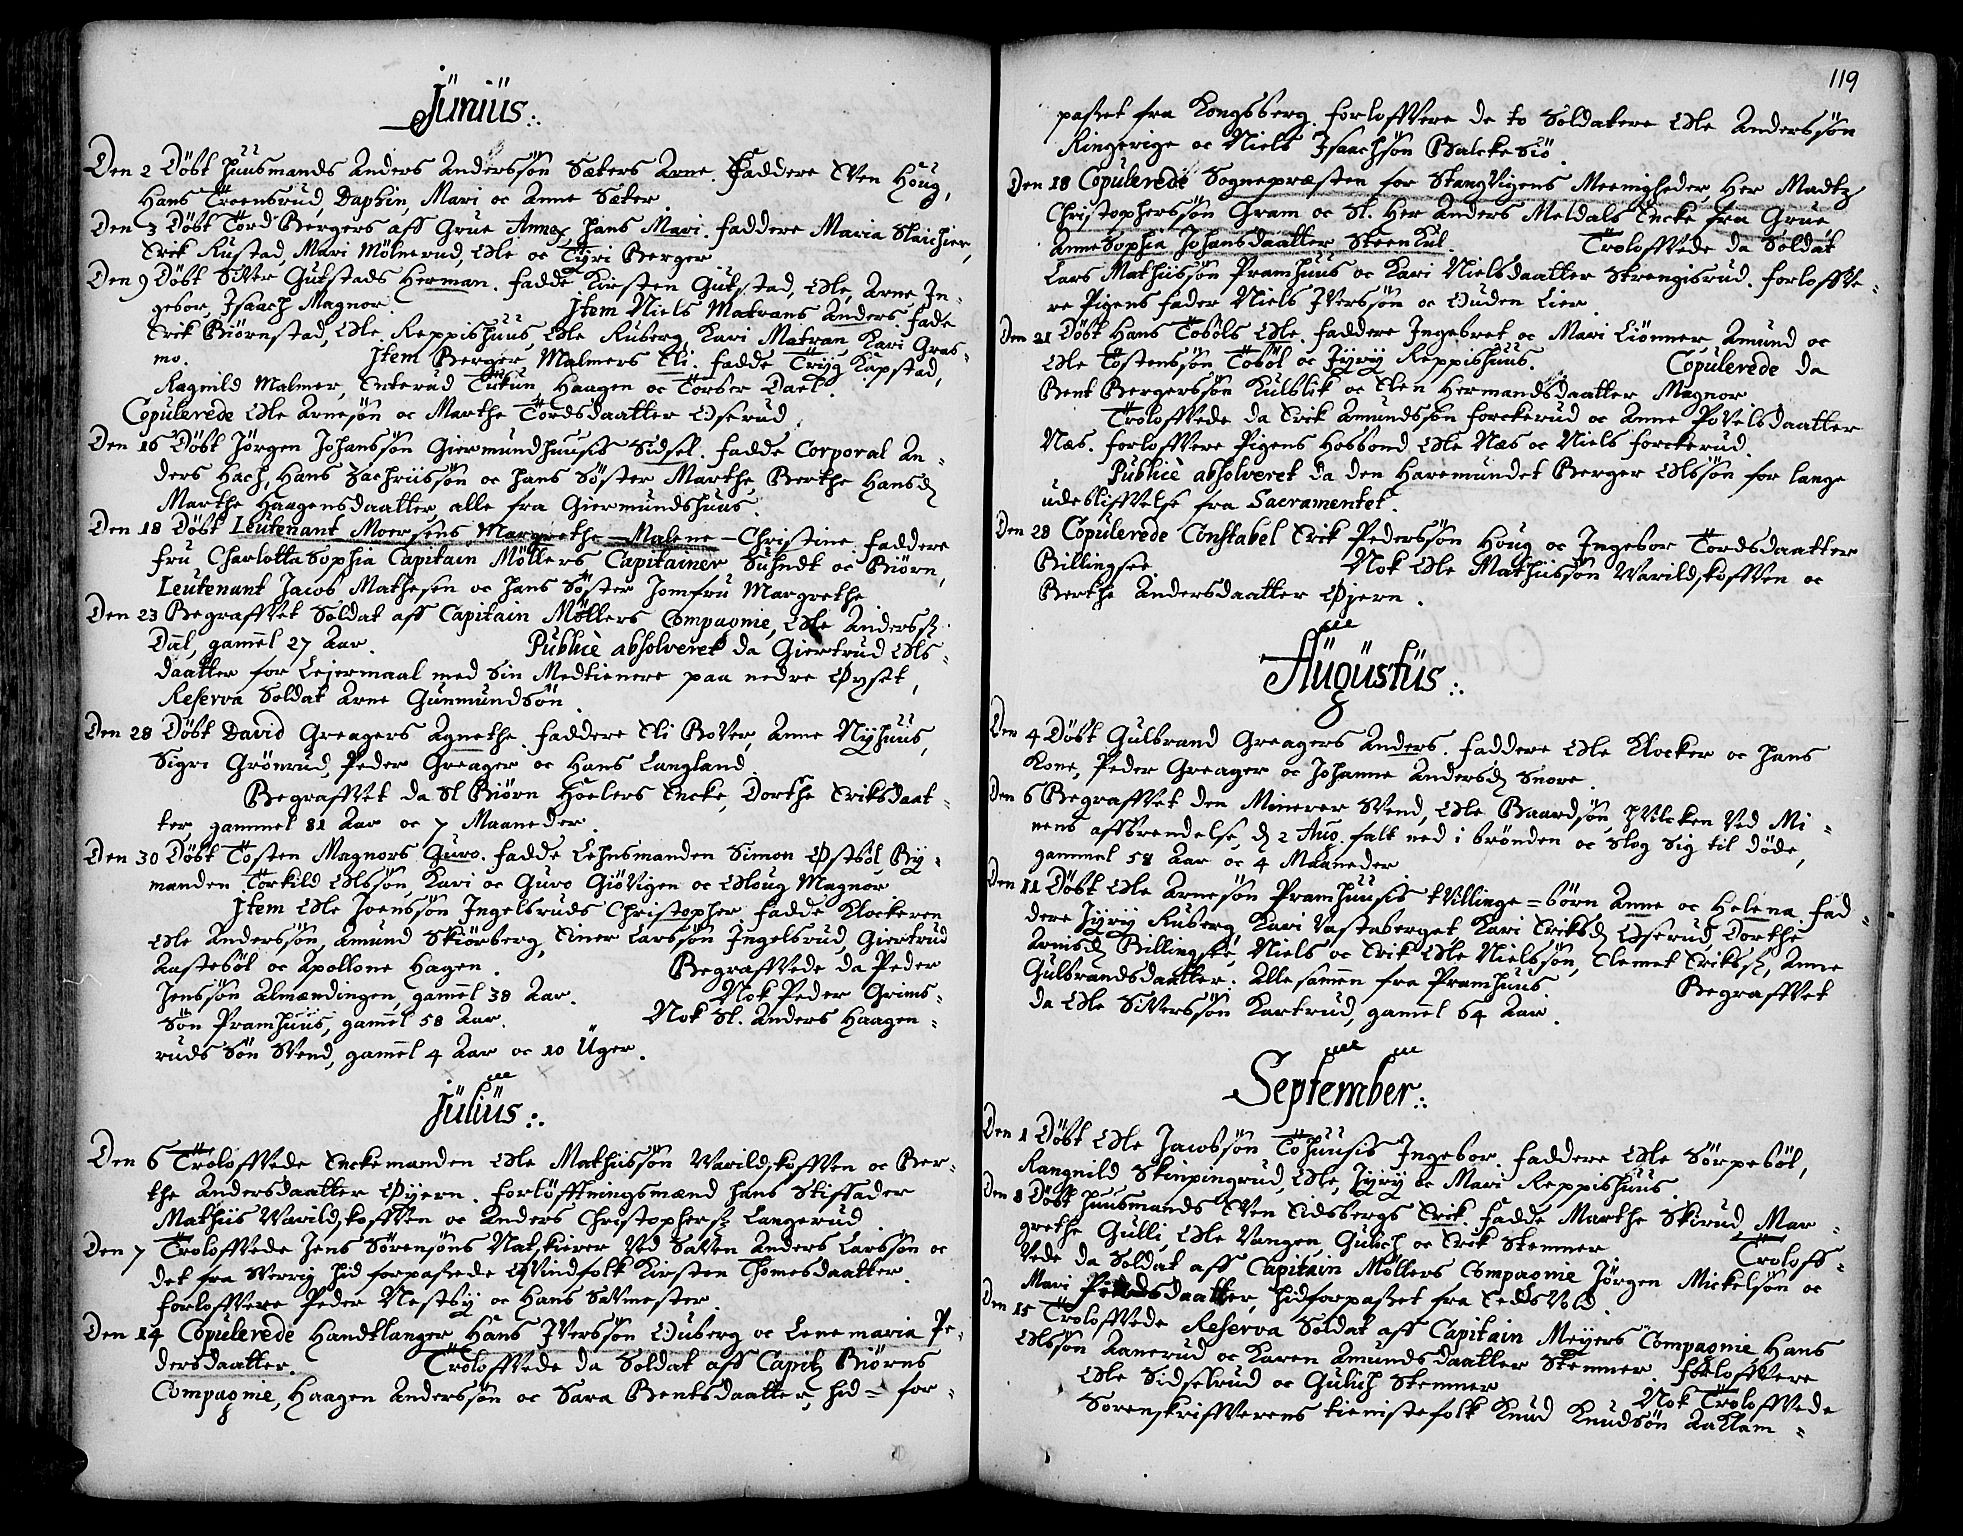 Junius.
Den 2 Døbt Huusmands Anders Anderssøn Sæters Arne. Faddere Sven Houg,
Hans Troensrud, Daphin, Mari oc Anne Sæter.
Den 3 Døbt Tord Bergers aff Grue Annex, Hans Mari. faddere Maria Slaichier,
Erik Rustad, Mari Mölnerud, Ole oc Tyri Berger
Den 9 Døbt Siver Gukstads Herman. fadde Kirsten Gukstad, Ole, Arne In-
gebor, Isaach Magnor. Item Niels Matrans Anders fade
Erik Biörnstad, Ole Reppishuus, Ole Ruberg, Kari Matran Kari Gras-
mo. Item Berger Malmers Eli. fadde Tryg Kapstad,
Ragnild Malmer, Haagen oc Torber Dael.
Copulerede Ole Arnesøn oc Marthe Tordsdaatter Oserud
Den 16 Døbt Jørgen Johanssøn Giermundhuusis Sidsel. fadde Corporal An-
ders Hach, Hans Zachriissøn oc hans Søster Marthe, Berthe Hansd
Marthe Haagensdaatter, alle fra Giermundshuus.
Den 18 Døbt Leutenant Moersens Margrethe Malene-Christine. faddere
fru Charlotta Sophia Capitain Möllers Capitainer Suhndt oc Biørn,
Leutenant Jacob Mathesen oc hans Søster Jomfru Margrethe
Den 23 Begraffvet Soldat aff Capitain Möllers Compagnie, Ole Anderss
Dal, gammel 27 Aar. Publicè absolveret da Giertrud Ols-
daatter for Leiermaal med sin Medtienere paa nedre Øyset,
Reserva Soldat Arne Gunmundsøn
Den 28 Døbt David Greagers Agnethe. faddere Eli Rover, Anne Nyhuus,
Sigri Grønrud, Peder Greager oc Hans Langland.
Begraffvet da Sl Biørn Hoelers Encke, Dorthe Eriksdaat-
ter, gammel 81 Aar oc 7 Maaneder.
Den 30 Døbt Tosten Magnors Guro. fadde Lehnsmanden Simon Østbøl By-
manden Torkild Olssøn, Kari oc Guro Giøvigen oc Oloug Magnor
Item Ole Joenssøn Ingelsruds Christopher. fadde Klockeren
Ole Anderssøn, Amund Skiørberg, Einer Larssøn Ingelsrud, Giertrud
Aastebøl oc Apollone Hagen. Begraffvede da Peder
Jenssøn Almændingen, gammel 38 Aar. Nok Peder Grims-
Søn Pramhuus, gammel 58 Aar. Nok Sl. Anders Haagen-
ruds Søn Svend, gammel 4 Aar oc 10 Uger.
Julius.
Den 6 Trolofvede Enckemanden Ole Mathiissøn Varildskoffven oc Ber-
the Andersdaatter Øyern. forløffningsmænd hans Stiffader
Mathiis Varildskoffven oc Anders Christophers Langerud
Den 7 Trolofvede Jens Sørensøns Natskierer ved Saven Anders Larssøn oc
det fra Sverrig hid forpassede Qvindfolk Kirsten Thomesdaatter.
forloffvere Peder Nestby oc Hans Savmester.
Den 14 Copulerede Handtlanger Hans Iverssøn Ouberg oc Lene maria Pe-
dersdaatter. Trolofvede da Soldat aff Capit Biørns
Compagnie, Haagen Anderssøn oc Sara Bentsdaatter, hid-for-
119
passet fra Kongsberg. forloffvere de to Soldatere Ole Anderssøn
Ringerige oc Niels Isaachsøn Balcke Siø.
Den 18 Copulerede Sognepræsten for Stangvigens Meenigheder, Her Madtz
Christopherssøn Gram oc Sl. Her Anders Meldals Encke fra Grue
Anne Sophia Johansdaatter Steenkul. Trolofvede da Soldat
Lars Mathiissøn Pramhuus oc Kari Nielsdaatter Strengisrud. forloffve-
re Pigens fader Niels Iverssøn oc Ouden Lier.
Den 21 Døbt Hans Tobøls Ole. faddere Ingebret oc Mari Liønner, Amund oc
Ole Tostensøn Tobøl oc Jyry Reppishuus. Copulerede da
Bent Bergersøn Kulblik oc Elen Hermandsdaatter Magnor
Trolofvede da Erik Amundssøn forckerud oc Anne Povelsdaatter
Næs. forloffvere Pigens Hosbond Ole Næs oc Niels forckerud.
Publicè absolveret da den Haremundet Berger Olssøn for lange
udebliffvelse fra Sacramentet.
Den 28 Copulerede Constabel Erik Pederssøn Houg oc Ingebor Tordsdaatter
Billingsee. Nok Ole Mathiissøn Varildskoffven oc
Berthe Andersdaatter Øjern.
Augustus.
Den 4 Døbt Gulbrand Greagers Anders. faddere Ole Klocker oc hans
Kone, Peder Greager oc Johanne Andersd Snore.
Den 6 Begraffvet den Minerer Svend, Ole Baardsøn, hvilcken ved Mi-
nens affbrendelse d 2 Aug. falt ned i brønden oc slog sig til døde,
gammel 58 Aar oc 4 Maaneder
Den 11 Døbt Ole Arnesøn Pramhuusis tvillinge-børn Anne oc Helena. fad-
dere Jyry Ruberg, Kari Vastaberget Kari Eriksd Oserud, Dorthe
Arnisd Billingsee, Niels oc Erik Ole Nielssøn, Clemet Erikss, Anne
Gulbrandsdaatter. Allesamen fra Pramhuus Begraffvet
da Ole Siverssøn Kartrud, gamel 64 Aar.
September.
Den 1 Døbt Ole Jacobsøn Tohuusis Ingebor. faddere Ole Sørpebøl,
Rangnild Skinpingrud, Ole, Jyry oc Mari Reppishuus.
Den 8 Døbt Huusmands Even Eidsbergs Erik. fadde Marthe Skirud, Mar-
grethe Gulli, Ole Vangen, Gulich oc Erik Stemner. Troloff-
vede da Soldat aff Capitain Möllers Compagnie Jørgen Mickelsøn oc
Mari Pedersdaatter, hidforpasset fra Eedsvold.
Den 15 Trolofvede Reserva Soldat aff Capitain Meyers Compagnie Hans
Olssøn Aanerud oc Karen Amundsdaatter Stemner. forloffvere
Ole Sidselrud oc Gulich Stemner. Nok Trolofvede
Sorenskriffverens tienistefolk Knud Knudsøn Aaklam-